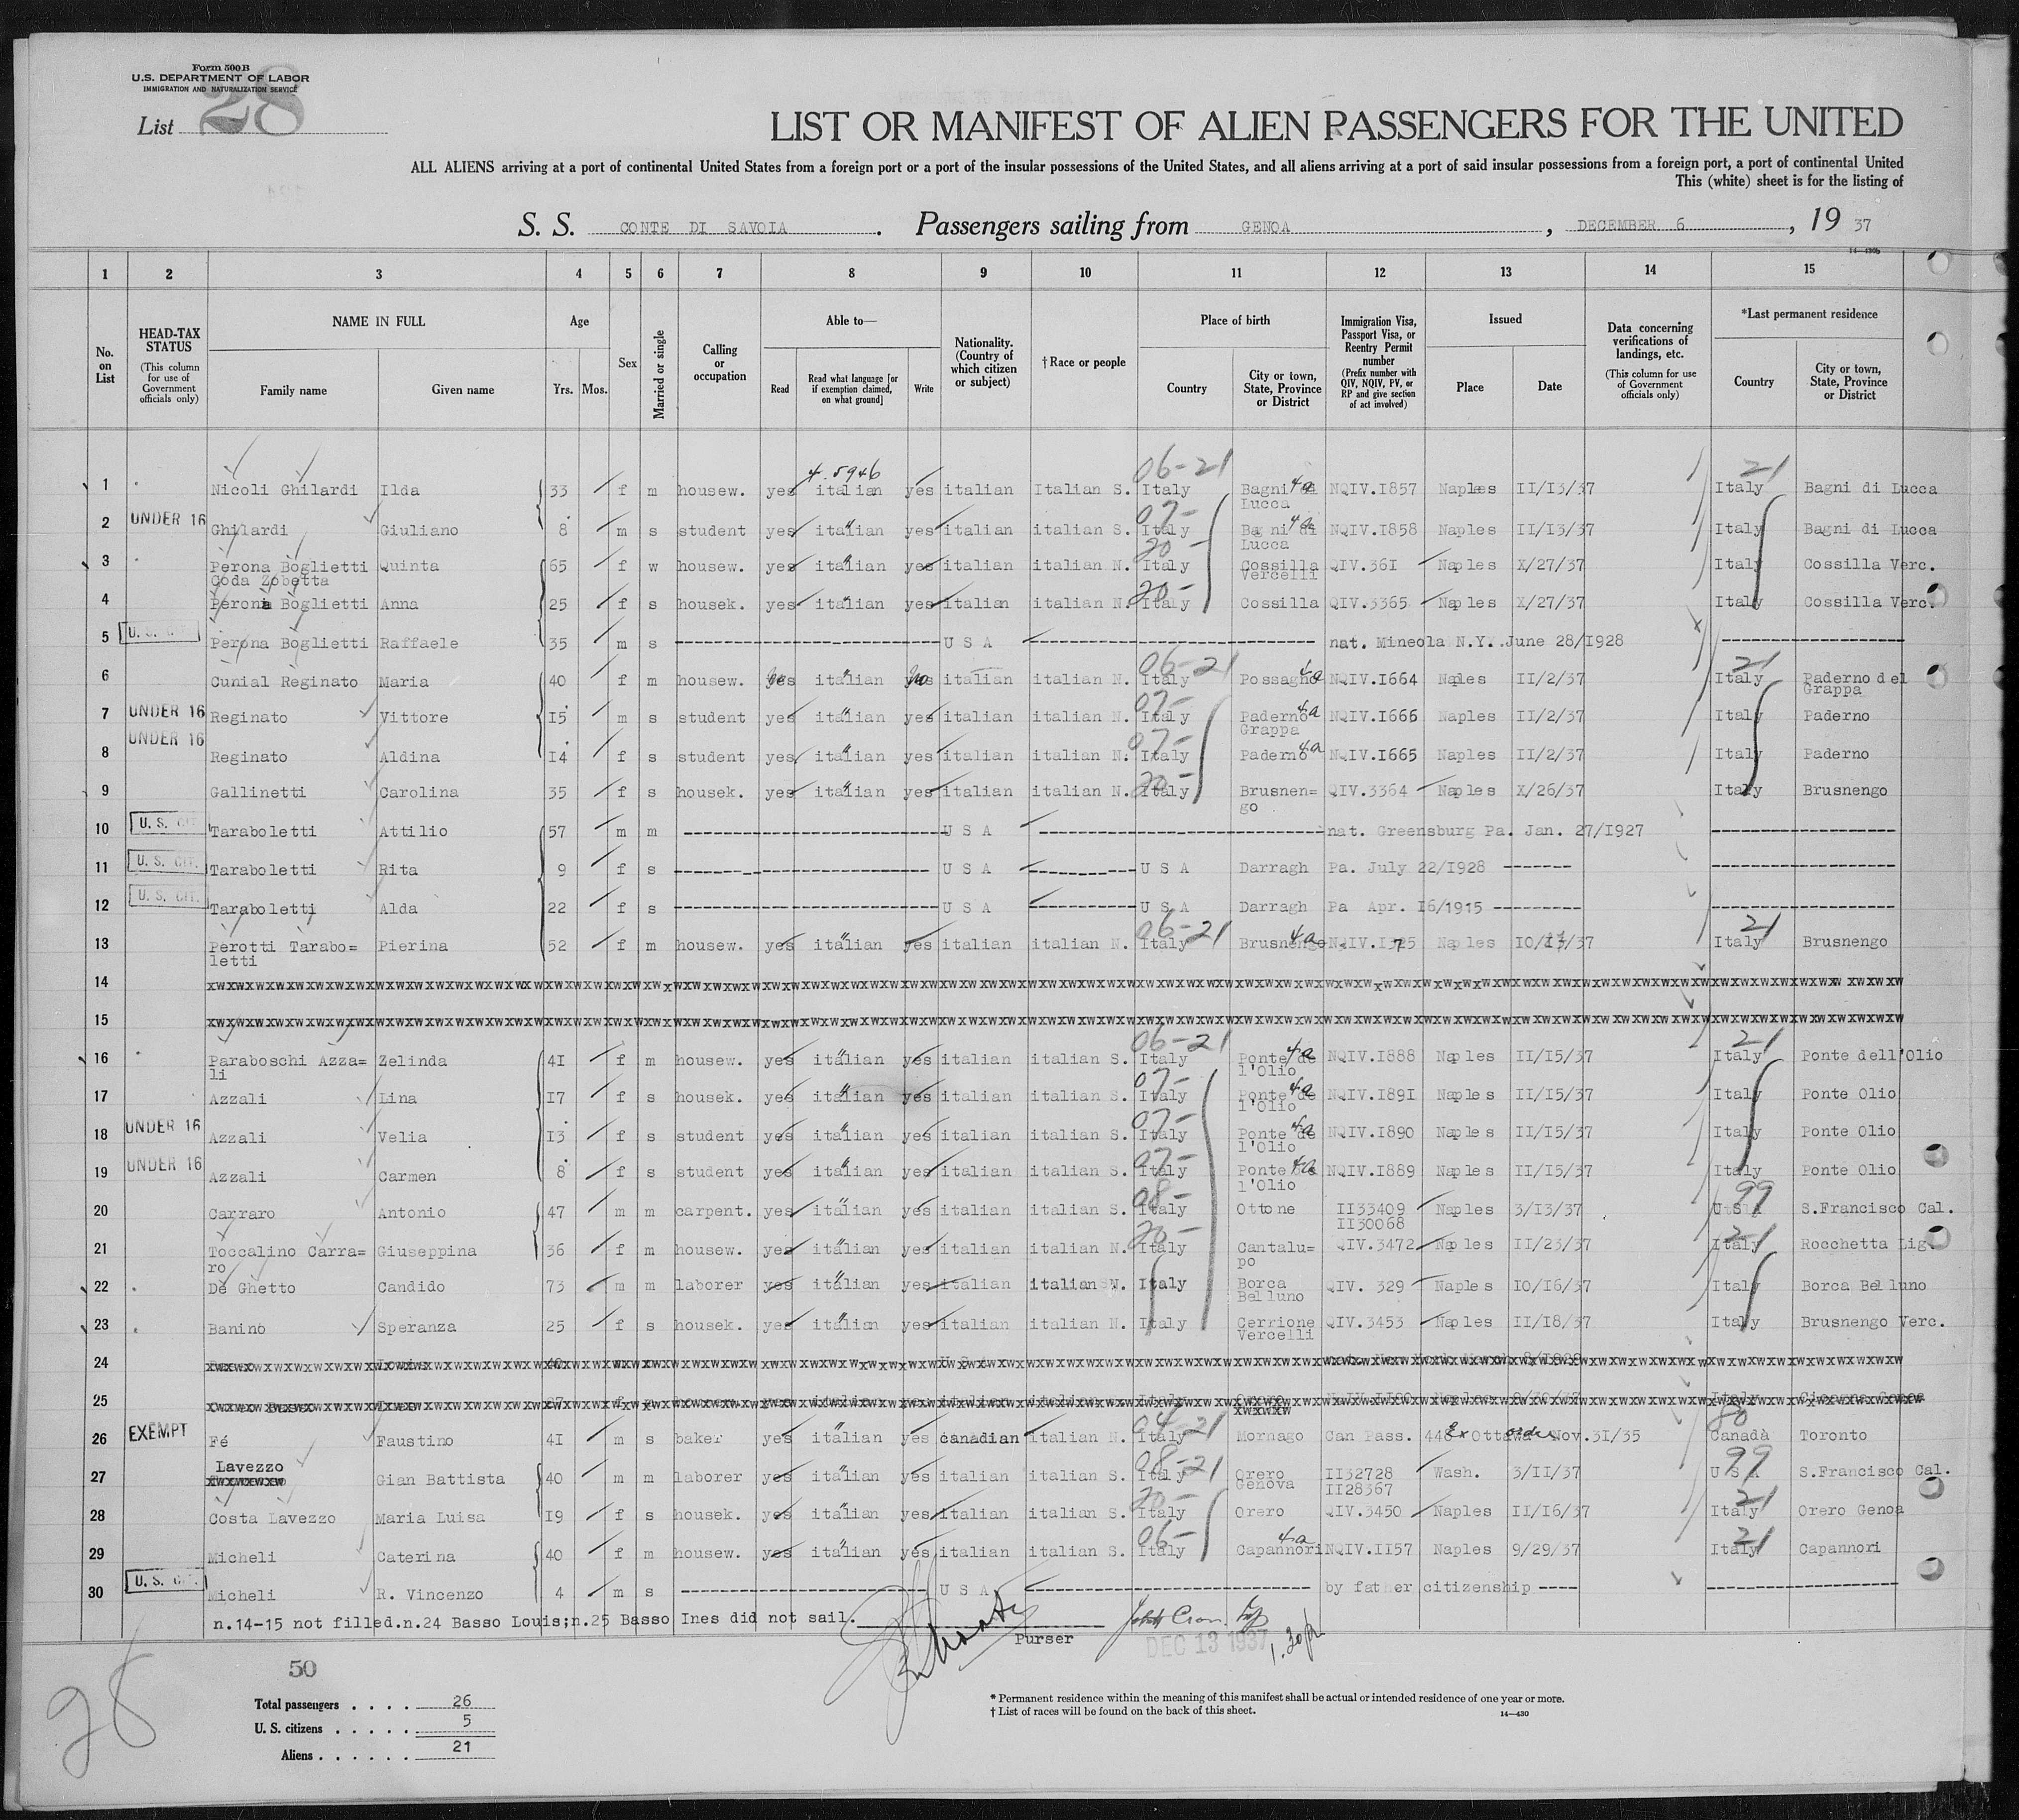 Form 500B
U.S. DEPARTMENT OF LABOR
IMMIGRATION AND NATURALIZATION SERVICE
List 28
LIST OR MANIFEST OF ALIEN PASSENGERS FOR THE UNITED
ALL ALIENS arriving at a port of continental United States from a foreign port or a port of the insular possessions of the United States, and all aliens arriving at a port of said insular possessions from a foreign port, a port of continental United
This (white) sheet is for the listing of
S. S. CONTE DI SAVOIA. Passengers sailing from GENOA, DECEMBER 6, 19 37
14—430b
1 2 3 4 5 6 7 8 9 10 11 12 13 14 15
No. on List
HEAD-TAX STATUS (This column for use of Government officials only)
NAME IN FULL Family name Given name
Age Yrs. Mos.
Sex
Married or single
Calling or occupation
Able to— Read Read what language [or if exemption claimed, on what ground] Write
Nationality. (Country of which citizen or subject)
†Race or people
Place of birth Country City or town, State, Province or District
Immigration Visa, Passport Visa, or Reentry Permit number (Prefix number with QIV, NQIV, PV, or RP and give section of act involved)
Issued Place Date
Data concerning verifications of landings, etc. (This column for use of Government officials only)
*Last permanent residence Country City or town, State, Province or District
4.5946 06-21 21
1 Nicoli Ghilardi Ilda 33 f m housew. yes italian yes italian Italian S. Italy Bagni di Lucca 4a NQIV.I857 Naples II/I3/37 Italy Bagni di Lucca
07-
2 UNDER 16 Ghilardi Giuliano 8 m s student yes italian yes italian italian S. Italy Bagni di Lucca 4a NQIV.I858 Naples II/I3/37 Italy Bagni di Lucca
20-
3 Perona Boglietti Quinta 65 f w housew. yes italian yes italian italian N. Italy Cossilla Vercelli QIV.36I Naples X/27/37 Italy Cossilla Verc.
Coda Zobetta
20-
4 Perona Boglietti Anna 25 f s housek. yes italian yes italian italian N. Italy Cossilla QIV.3365 Naples X/27/37 Italy Cossilla Verc.
5 U. S. CIT. Perona Boglietti Raffaele 35 m s U S A nat. Mineola N.Y. June 28/I928
06-21 21
6 Cunial Reginato Maria 40 f m housew. yes no italian yes no italian italian N. Italy Possagno 4a NQIV.I664 Naples II/2/37 Italy Paderno del Grappa
07-
7 UNDER 16 Reginato Vittore I5 m s student yes italian yes italian italian N. Italy Paderno Grappa 4a NQIV.I666 Naples II/2/37 Italy Paderno
07-
8 UNDER 16 Reginato Aldina I4 f s student yes italian yes italian italian N. Italy Paderno 4a NQIV.I665 Naples II/2/37 Italy Paderno
20-
9 Gallinetti Carolina 35 f s housek. yes italian yes italian italian N. Italy Brusnen=go QIV.3364 Naples X/26/37 Italy Brusnengo
10 U. S. CIT. Taraboletti Attilio 57 m m U S A nat. Greensburg Pa. Jan. 27/I927
11 U. S. CIT. Taraboletti Rita 9 f s U S A U S A Darragh Pa. July 22/I928
12 U. S. CIT. Taraboletti Alda 22 f s U S A U S A Darragh Pa Apr. I6/1915
06-21 21
13 Perotti Tarabo=letti Pierina 52 f m housew. yes italian yes italian italian N. Italy Brusnengo 4a Naples Italy Brusnengo
14
15
06-21 21
16 Paraboschi Azza=li Zelinda 4I f m housew. yes italian yes italian italian S. Italy Ponte de l'Olio 4a NQIV.I888 Naples II/I5/37 Italy Ponte dell'Olio
07-
17 Azzali Lina I7 f s housek. yes italian yes italian italian S. Italy Ponte de l'Olio 4a NQIV.I89I Naples II/I5/37 Italy Ponte Olio
07-
18 UNDER 16 Azzali Velia I3 f s student yes italian yes italian italian S. Italy Ponte de l'Olio 4a NQIV.I890 Naples II/I5/37 Italy Ponte Olio
07-
19 UNDER 16 Azzali Carmen 8 f s student yes italian yes italian italian S. Italy Ponte de l'Olio 4a NQIV.I889 Naples II/I5/37 Italy Ponte Olio
08- 99
20 Carraro Antonio 47 m m carpent. yes italian yes italian italian S. Italy Ottone II33409 II30068 Naples 3/I3/37 U S A S.Francisco Cal.
20- 21
21 Toccalino Carra=ro Giuseppina 36 f m housew. yes italian yes italian italian N. Italy Cantalu=po QIV.3472 Naples II/23/37 Italy Rocchetta Lig.
22 De Ghetto Candido 73 m m laborer yes italian yes italian italian N. Italy Borca Belluno QIV. 329 Naples IO/I6/37 Italy Borca Belluno
23 Banino Speranza 25 f s housek. yes italian yes italian italian N. Italy Cerrione Vercelli QIV.3453 Naples II/I8/37 Italy Brusnengo Verc.
24
25
04-21 80
26 EXEMPT Fé Faustino 4I m s baker yes italian yes canadian italian N. Italy Mornago Can Pass. Ottawa Nov.3I/35 Canadà Toronto
08-21 99
27 Lavezzo Gian Battista 40 m m laborer yes italian yes italian italian S. Italy Orero Genova II32728 II28367 Wash. 3/II/37 U S A S.Francisco Cal.
20- 21
28 Costa Lavezzo Maria Luisa I9 f s housek. yes italian yes italian italian S. Italy Orero QIV.3450 Naples II/I6/37 Italy Orero Genoa
06- 21
29 Micheli Caterina 40 f m housew. yes italian yes italian italian S. Italy Capannori 4a NQIV.II57 Naples 9/29/37 Italy Capannori
30 U. S. CIT. Micheli R. Vincenzo 4 m s U S A by father citizenship
n.14-15 not filled.n.24 Basso Louis;n.25 Basso Ines did not sail.
Purser
DEC 13 1937
1.30 pm
28
50
Total passengers . . . . 26
U. S. citizens . . . . . 5
Aliens . . . . . . 21
* Permanent residence within the meaning of this manifest shall be actual or intended residence of one year or more.
† List of races will be found on the back of this sheet.
14—430